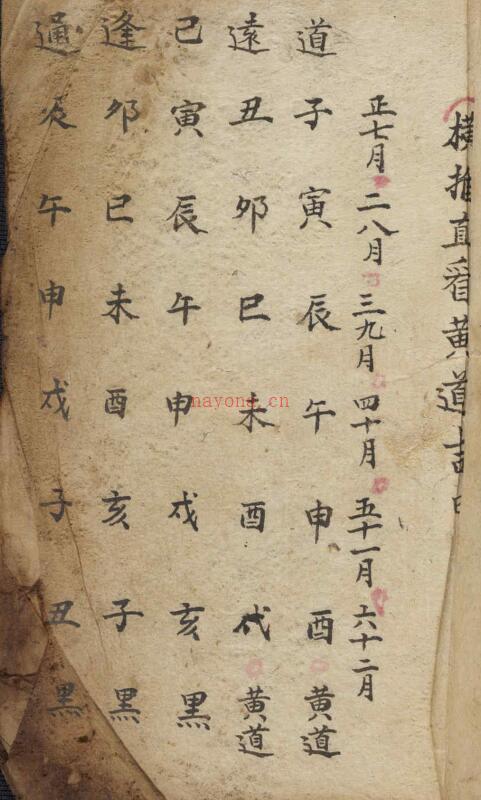 橫推直看黄道吉
正七月 二八月 三九月 四十月 五十一月 六十二月
道 子 寅 辰 午 申 酉 黄道
遠 丑 卯 巳 未 酉 戌 黄道
己 寅 辰 午 申 戌 亥 黑
逢 卯 巳 未 酉 亥 子 黑
通 辰 午 申 戌 子 丑 黑
nayona.cn